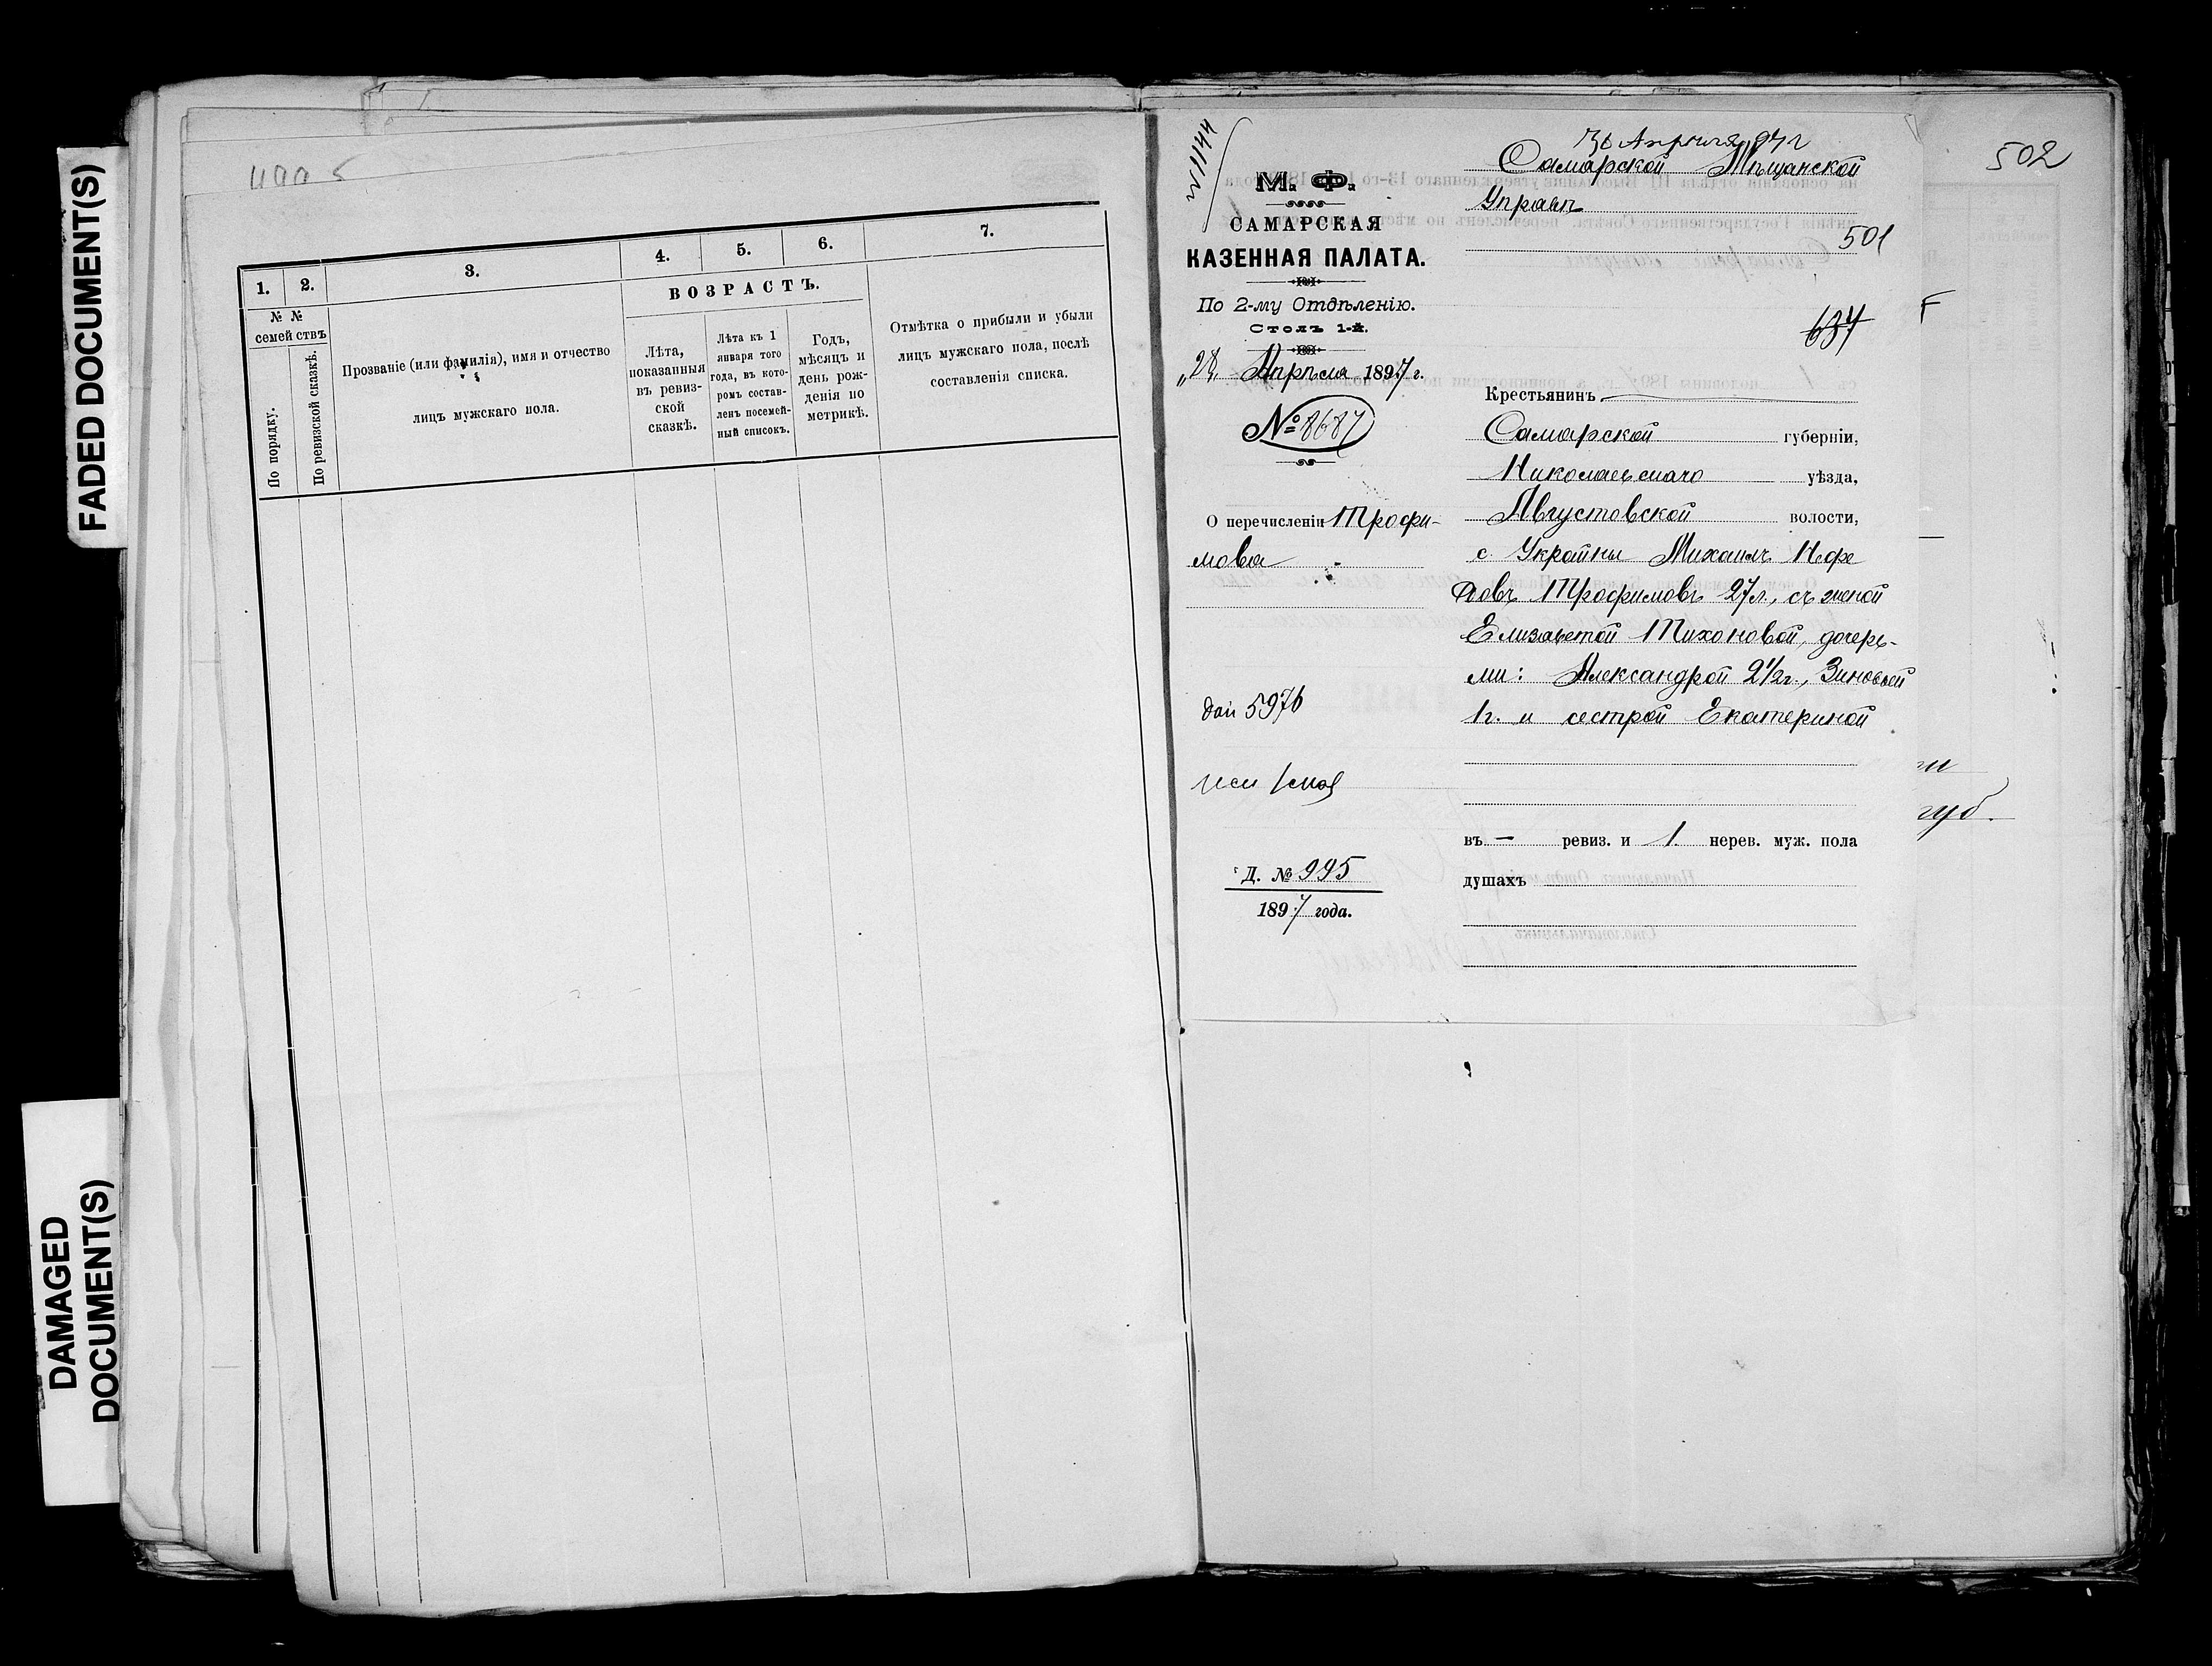 FADED DOCUMENT(S)
DAMAGED
DOCUMENT(S)
1.
2.
3.
4.
5.
6.
7.
№ №
семействъ
По порядку.
По ревизской сказкѣ.
Прозваніе (или фамилія), имя и отчество
лицъ мужскаго пола.
ВОЗРАСТЪ.
Лѣта,
показанныя
въ ревиз-
ской
сказкѣ.
Лѣта къ 1
января того
года, въ кото-
ромъ состав-
ленъ посемей-
ный списокъ.
Годъ,
мѣсяцъ и
день рож-
денія по
метрикѣ.
Отмѣтка о прибыли и убыли
лицъ мужскаго пола, послѣ
составленія списка.
М. Ф.
САМАРСКАЯ
КАЗЕННАЯ ПАЛАТА.
По 2-му Отдѣленію.
Столъ 1-й.
Апрѣля 1897 г.
№ 8687
О перечисленіи Трофи-
мова
5976
Д. № 995
1897 года.
Апрѣля 97 г
Самарской Мѣщанской
Управѣ
501
637
Крестьянинъ
Самарской губерніи,
Николаевскаго уѣзда,
Августовской волости,
с. Украйны Михаилъ Нефе
довъ Трофимовъ 27 л., съ женой
Елизаветой Тихоновой, дочерь-
ми: Александрой 2 1/2 г., Зиновьей
1 г. и сестрой Екатериной
въ — ревиз. и 1 нерев. муж. пола
душахъ
502
губ.